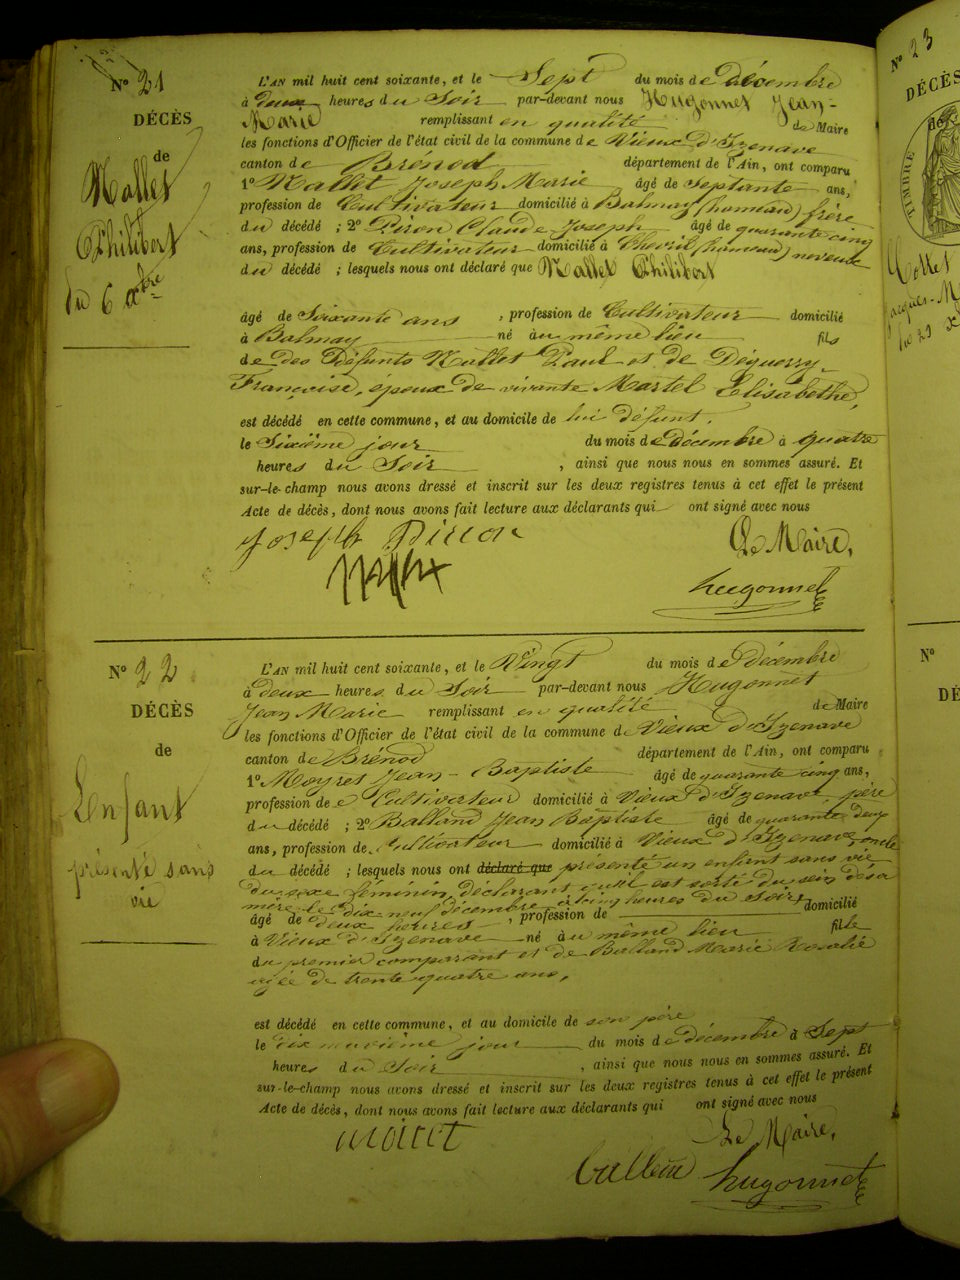 N° 21
DÉCÈS
de
Mallet
Philibert
du 6 xbre
L'AN mil huit cent soixante, et le Sept du mois de Décembre
à deux heures du Soir par-devant nous Hugonnet Jean-
Marie remplissant en qualité de Maire
les fonctions d'Officier de l'état civil de la commune de Vieux d'Izenave
canton de Brénod département de l'Ain, ont comparu
1° Mallet Joseph Marie âgé de Septante ans,
profession de Cultivateur domicilié à Balmay (hameau) frère
du décédé ; 2° Piron Claude Joseph âgé de quarante cinq
ans, profession de Cultivateur domicilié à Chevril (hameau) neveux
du décédé ; lesquels nous ont déclaré que Mallet Philibert
âgé de Soixante ans , profession de Cultivateur domicilié
à Balmay né au même lieu fils
de des Défunts Mallet Paul et de Déguerry
Françoise, époux de vivante Martel Elisabethe,
est décédé en cette commune, et au domicile de lui défunt,
le Sixième jour du mois de Décembre à quatre
heures du Soir , ainsi que nous nous en sommes assuré. Et
sur-le-champ nous avons dressé et inscrit sur les deux registres tenus à cet effet le présent
Acte de décès, dont nous avons fait lecture aux déclarants qui ont signé avec nous
Joseph Pirron
Le Maire,
hugonnet
N° 22
DÉCÈS
de
Lenfant
présenté sans
vie
L'AN mil huit cent soixante, et le Vingt du mois de Décembre
à deux heures du Soir par-devant nous Hugonnet
Jean Marie remplissant en qualité de Maire
les fonctions d'Officier de l'état civil de la commune de Vieux d'Izenave
canton de Brénod département de l'Ain, ont comparu
1° Moyret Jean-Baptiste âgé de quarante cinq ans,
profession de Cultivateur domicilié à Vieux d'Izenave, père
du décédé ; 2° Balland Jean Baptiste âgé de quarante deux
ans, profession de Cultivateur domicilié à Vieux d'Izenave, oncle
du décédé ; lesquels nous ont déclaré que présenté un enfant sans vie
du sexe féminin, déclarant qu'il est sorté du sein de sa
mère le dix neuf décembre à cinq heures du soir, domicilié
âgé de deux heures , profession de
à Vieux d'Izenave né au même lieu fille
du premier comparant et de Balland Marie Rosalie
agée de trente quatre ans,
est décédé en cette commune, et au domicile de son père
le dix neuvième jour du mois de Décembre à Sept
heures du Soir , ainsi que nous nous en sommes assuré. Et
sur-le-champ nous avons dressé et inscrit sur les deux registres tenus à cet effet le présent
Acte de décès, dont nous avons fait lecture aux déclarants qui ont signé avec nous
moiret
Le Maire,
hugonnet
N° 23
DÉCÈS
de
TIMBRE
N°
DÉ